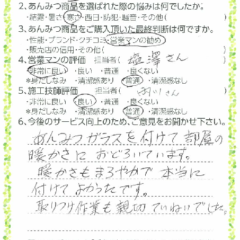 2.あんみつ商品を選ばれた際の悩みは何でしたか。
・結露・暑さ・寒さ・西日・防犯・騒音・その他(
3.あんみつ商品をご購入頂いた最終判断は何ですか。
・性能・ブランド・クチコミ・営業マンの勧め
・販売店の信用・その他(
4.営業マンの評価 担当者( 塩澤さん
・非常に良い ・良い ・普通 ・良くない
※身だしなみ ・清掃状況 ・言葉遣い ・その他(
5.施工技師評価 担当者(
・非常に良い ・良い ・普通 ・良くない
※身だしなみ ・清掃状況 ・言葉遣い ・その他(
6.今後のサービス向上のため、ご意見をお聞かせ下さい。
あんみつガラスを付けて部屋の
暖かさに おどろいています。
暖かさもまろやかで 本当に
付けて よかったです。
取りつけ作業も 親切 ていねいでした。